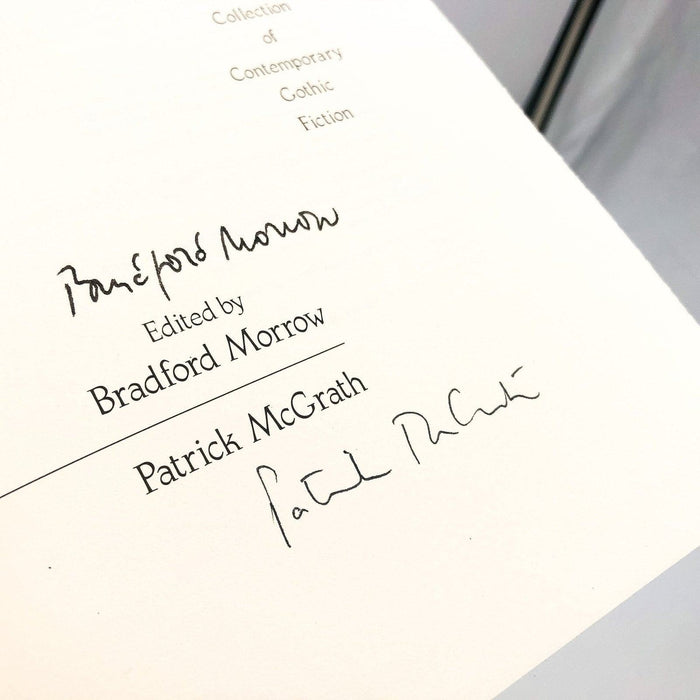 Collection
of
Contemporary
Gothic
Fiction
Bradford Morrow
Edited by
Bradford Morrow
Patrick McGrath
Patrick McGrath